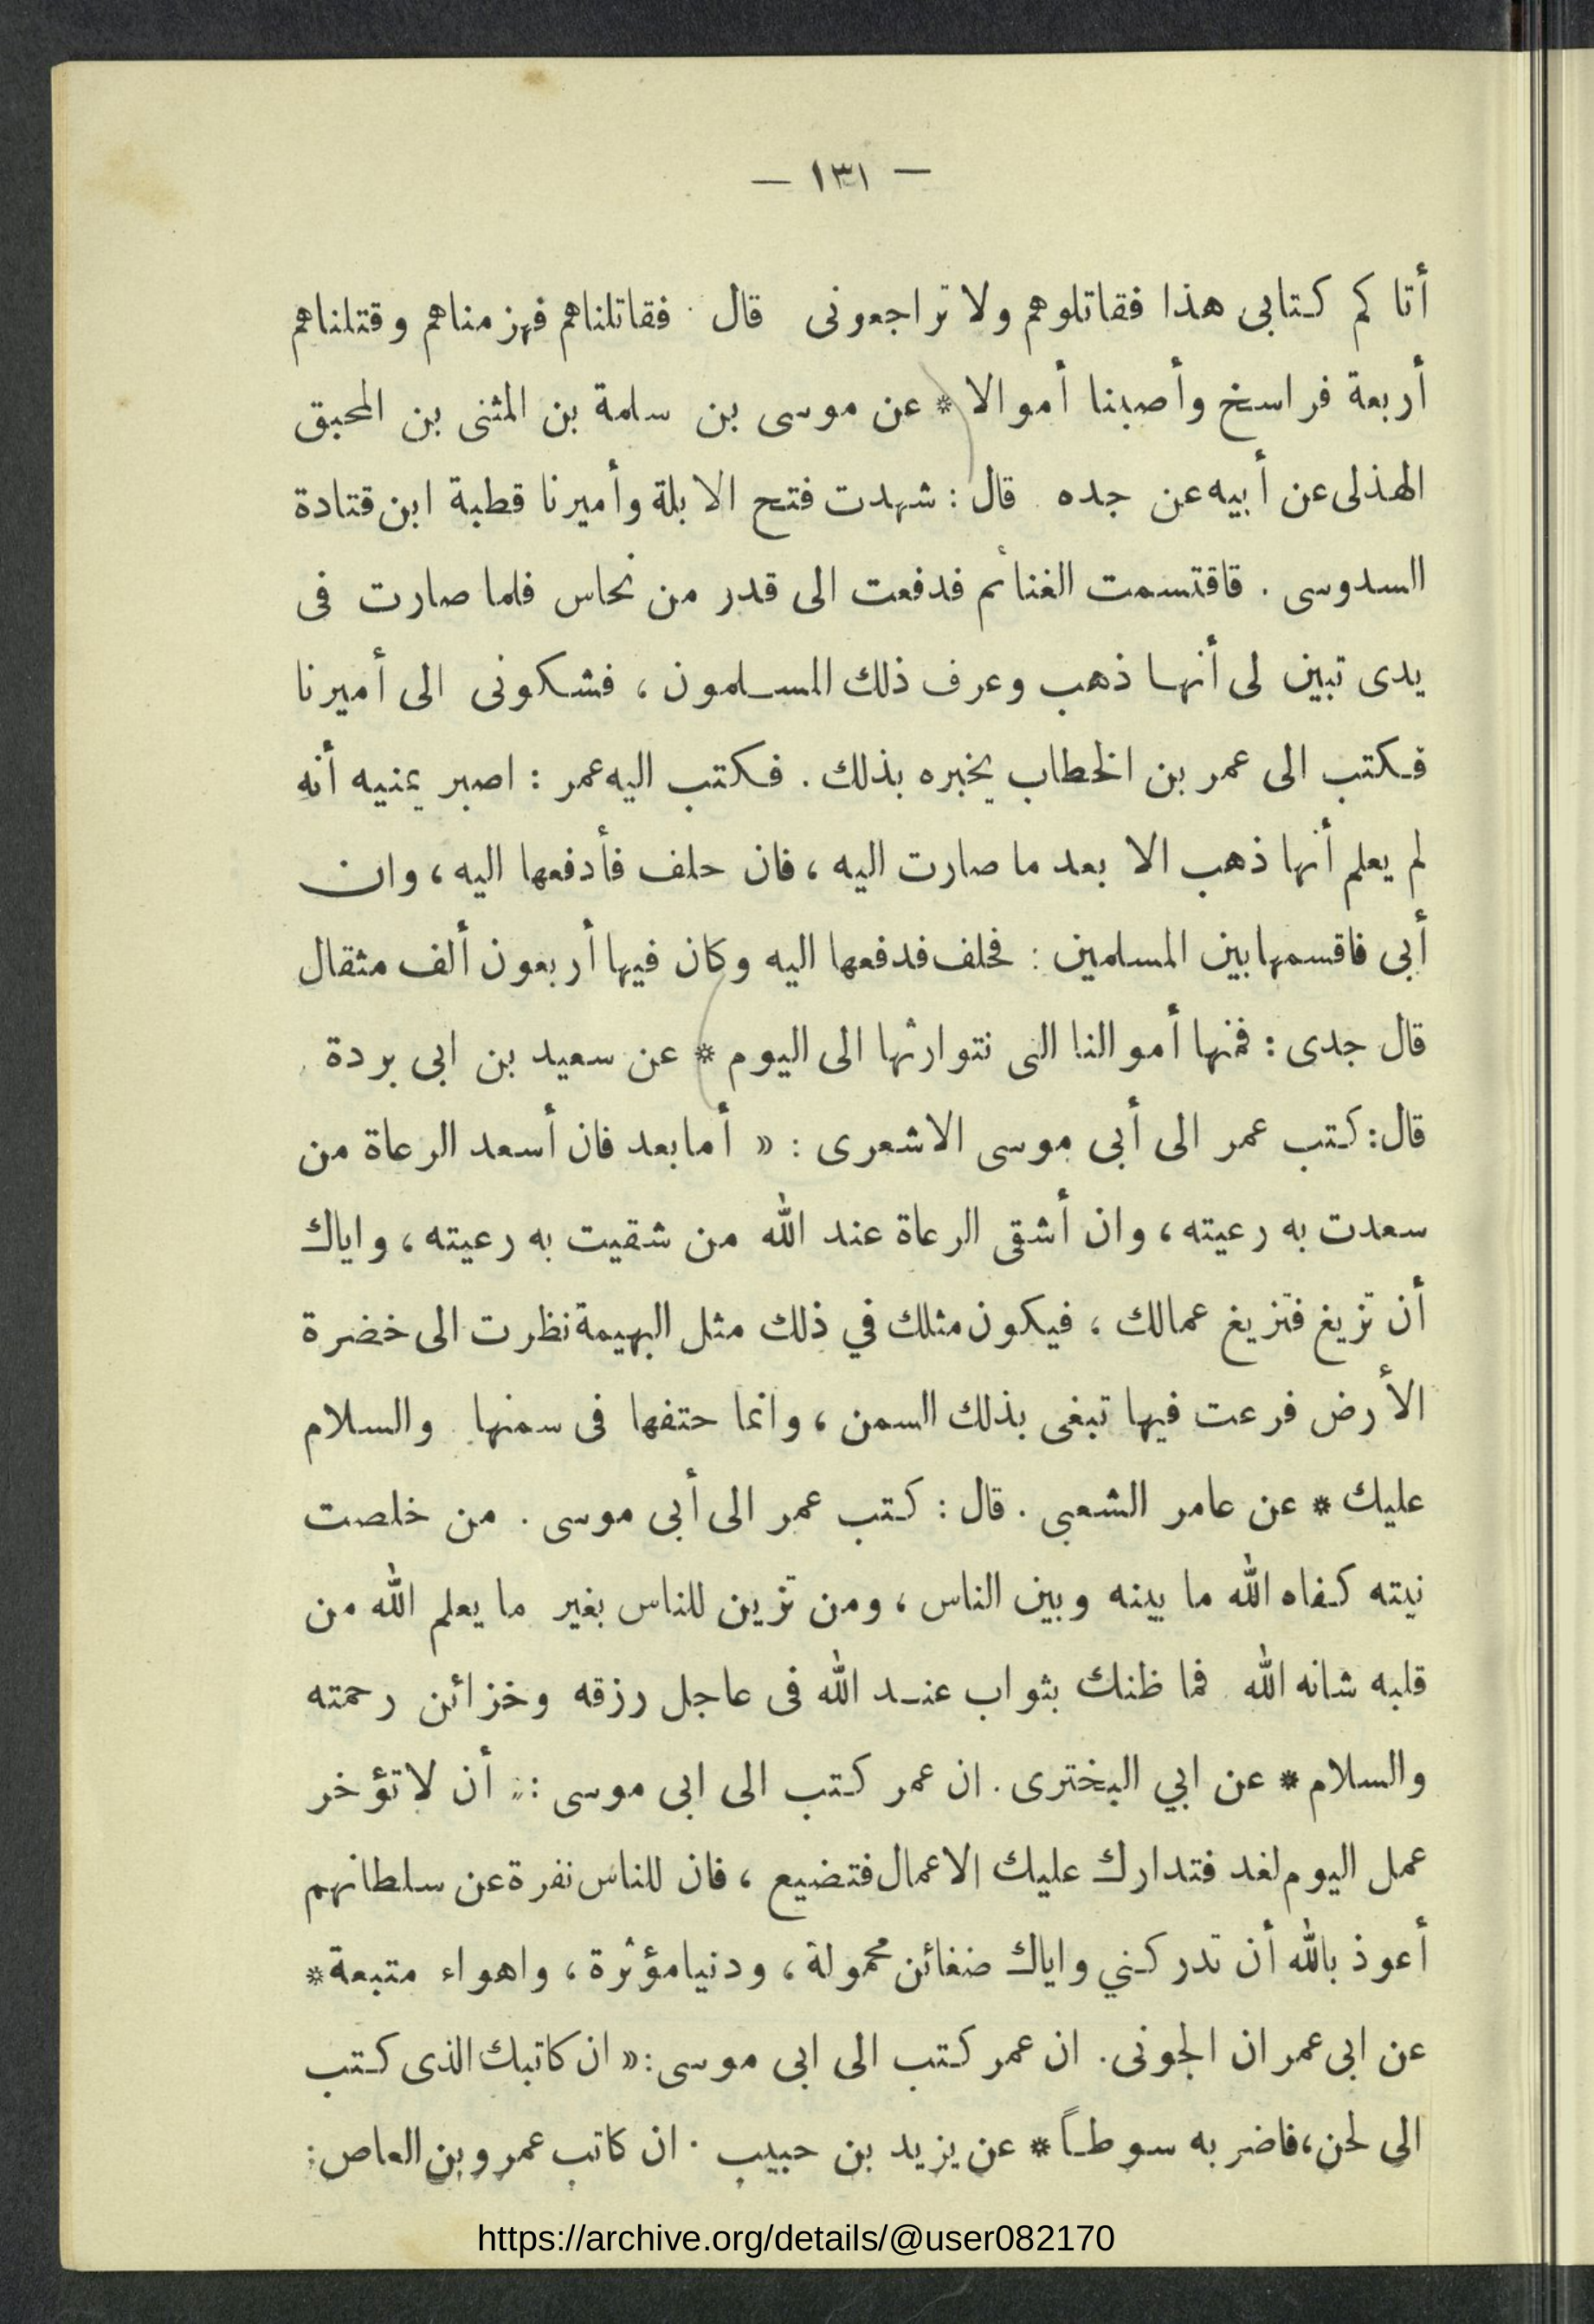 — ١٣١ —
أتاكم كتابى هذا فقاتلوهم ولا تراجعونى قال . فقاتلناهم فهزمناهم وقتلناهم
أربعة فراسخ وأصبنا أموالا * عن موسى بن سلمة بن المثنى بن المحبق
الهذلى عن أبيه عن جده . قال : شهدت فتح الابلة وأميرنا قطبة ابن قتادة
السدوسى . قاقتسمت الغنائم فدفعت الى قدر من نحاس فلما صارت فى
يدى تبين لى أنها ذهب وعرف ذلك المسلمون ، فشكونى الى أميرنا
فكتب الى عمر بن الخطاب يخبره بذلك . فكتب اليه عمر : اصبر يمنيه أنه
لم يعلم أنها ذهب الا بعد ما صارت اليه ، فان حلف فأدفعها اليه ، وان
أبى فاقسمها بين المسلمين : فحلف فدفعها اليه وكان فيها أربعون ألف مثقال
قال جدى : فمنها أموالنا التى نتوارثها الى اليوم * عن سعيد بن ابى بردة .
قال : كتب عمر الى أبى موسى الاشعرى : « أما بعد فان أسعد الرعاة من
سعدت به رعيته ، وان أشقى الرعاة عند الله من شقيت به رعيته ، واياك
أن تزيغ فتزيغ عمالك ، فيكون مثلك في ذلك مثل البهيمة نظرت الى خضرة
الأرض فرعت فيها تبغى بذلك السمن ، وانما حتفها فى سمنها . والسلام
عليك * عن عامر الشعبى . قال : كتب عمر الى أبى موسى . من خلصت
نيته كفاه الله ما بينه وبين الناس ، ومن تزين للناس بغير ما يعلم الله من
قلبه شانه الله . فما ظنك بثواب عند الله فى عاجل رزقه وخزائن رحمته
والسلام * عن ابي البخترى . ان عمر كتب الى ابى موسى : « أن لا تؤخر
عمل اليوم لغد فتدارك عليك الاعمال فتضيع ، فان للناس نفرة عن سلطانهم
أعوذ بالله أن تدركني واياك ضغائن محمولة ، ودنيا مؤثرة ، واهواء متبعة *
عن ابى عمران الجونى . ان عمر كتب الى ابى موسى : « ان كاتبك الذى كتب
الى لحن ، فاضربه سوطاً * عن يزيد بن حبيب . ان كاتب عمرو بن العاص :
https://archive.org/details/@user082170